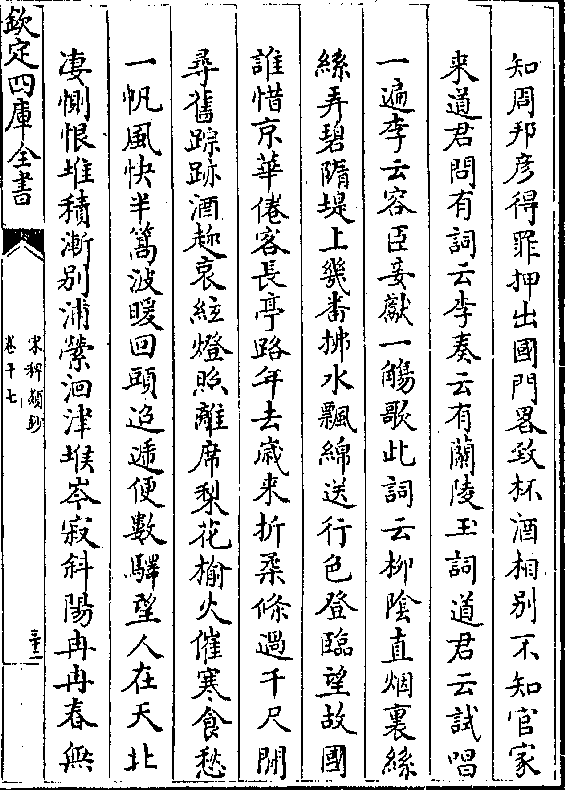 知周邦彦得罪押出國門畧致杯酒相别不知官家
来道君問有詞云李奏云有蘭陵王詞道君云試唱
一遍李云容臣妾獻一觴歌此詞云柳陰直烟裏絲
絲弄碧隋堤上幾番拂水飄綿送行色登臨望故國
誰惜京華倦客長亭路年去歲来折柔條過千尺閒
尋舊踪跡酒趂哀絃燈照離席梨花榆火催寒食愁
一帆風快半篙波暖回頭迢遞便數驛望人在天北
凄惻恨堆積漸别浦縈洄津堠岑寂斜陽冉冉春無
欽定四庫全書
宋稗類鈔
卷十七
三十二